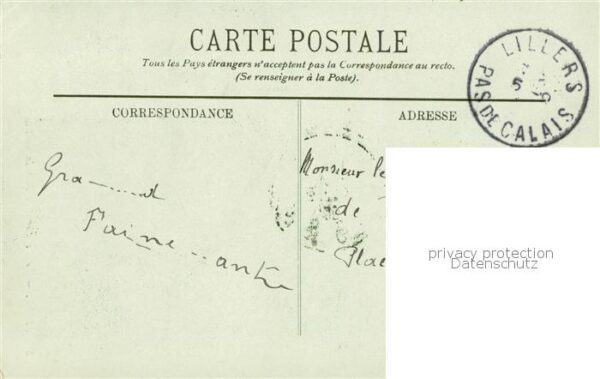 CARTE POSTALE
Tous les Pays étrangers n'acceptent pas la Correspondance au recto.
(Se renseigner à la Poste).
LILLERS
PAS DE CALAIS
CORRESPONDANCE
ADRESSE
Monsieur le
de
Place
Gra......d
Faine...ante
privacy protection
Datenschutz